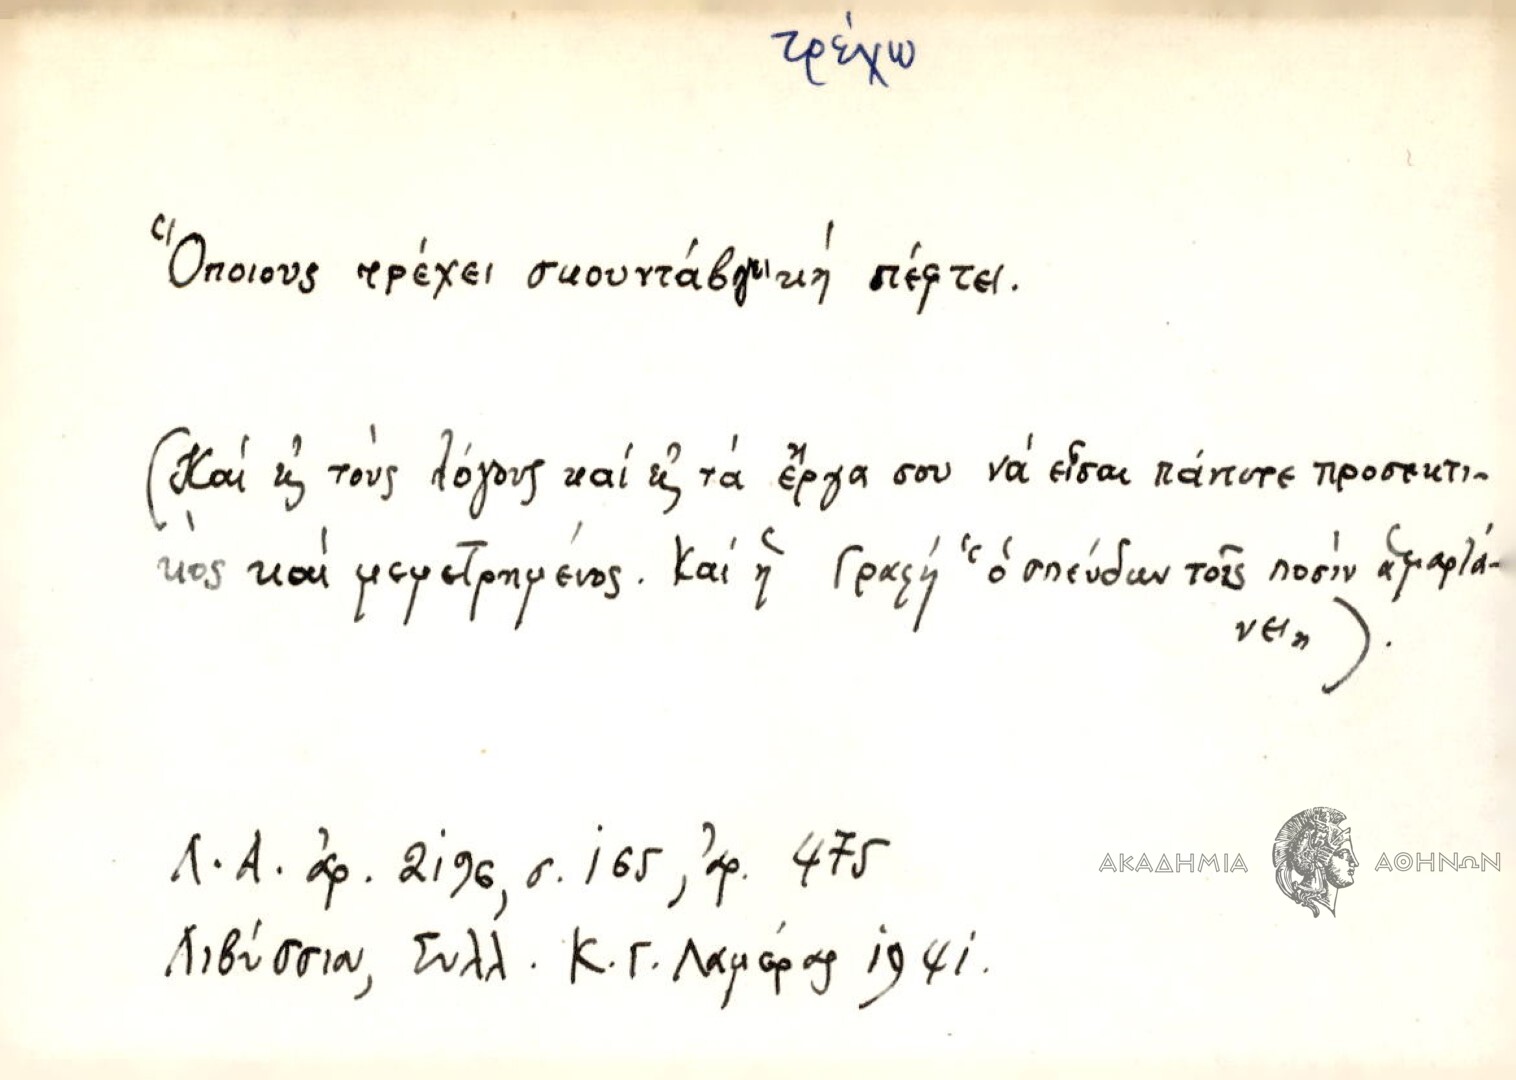 τρέχω
Ὅποιους τρέχει σκουντάβγει κή πέφτει.
(Καί εἰς τούς λόγους καί εἰς τά ἔργα σου νά εἶσαι πάντοτε προσεκτι-
κός καί μεμετρημένος. Καί ἡ Γραφή "ὁ σπεύδων τοῖς ποσίν ἁμαρτά-
νει").
Λ.Α. ἀρ. 2196, σ. 165, ἀρ. 475
Λιβύσσιον, Συλλ. Κ. Γ. Λαμέρας 1941.
ΑΚΑΔΗΜΙΑ ΑΘΗΝΩΝ